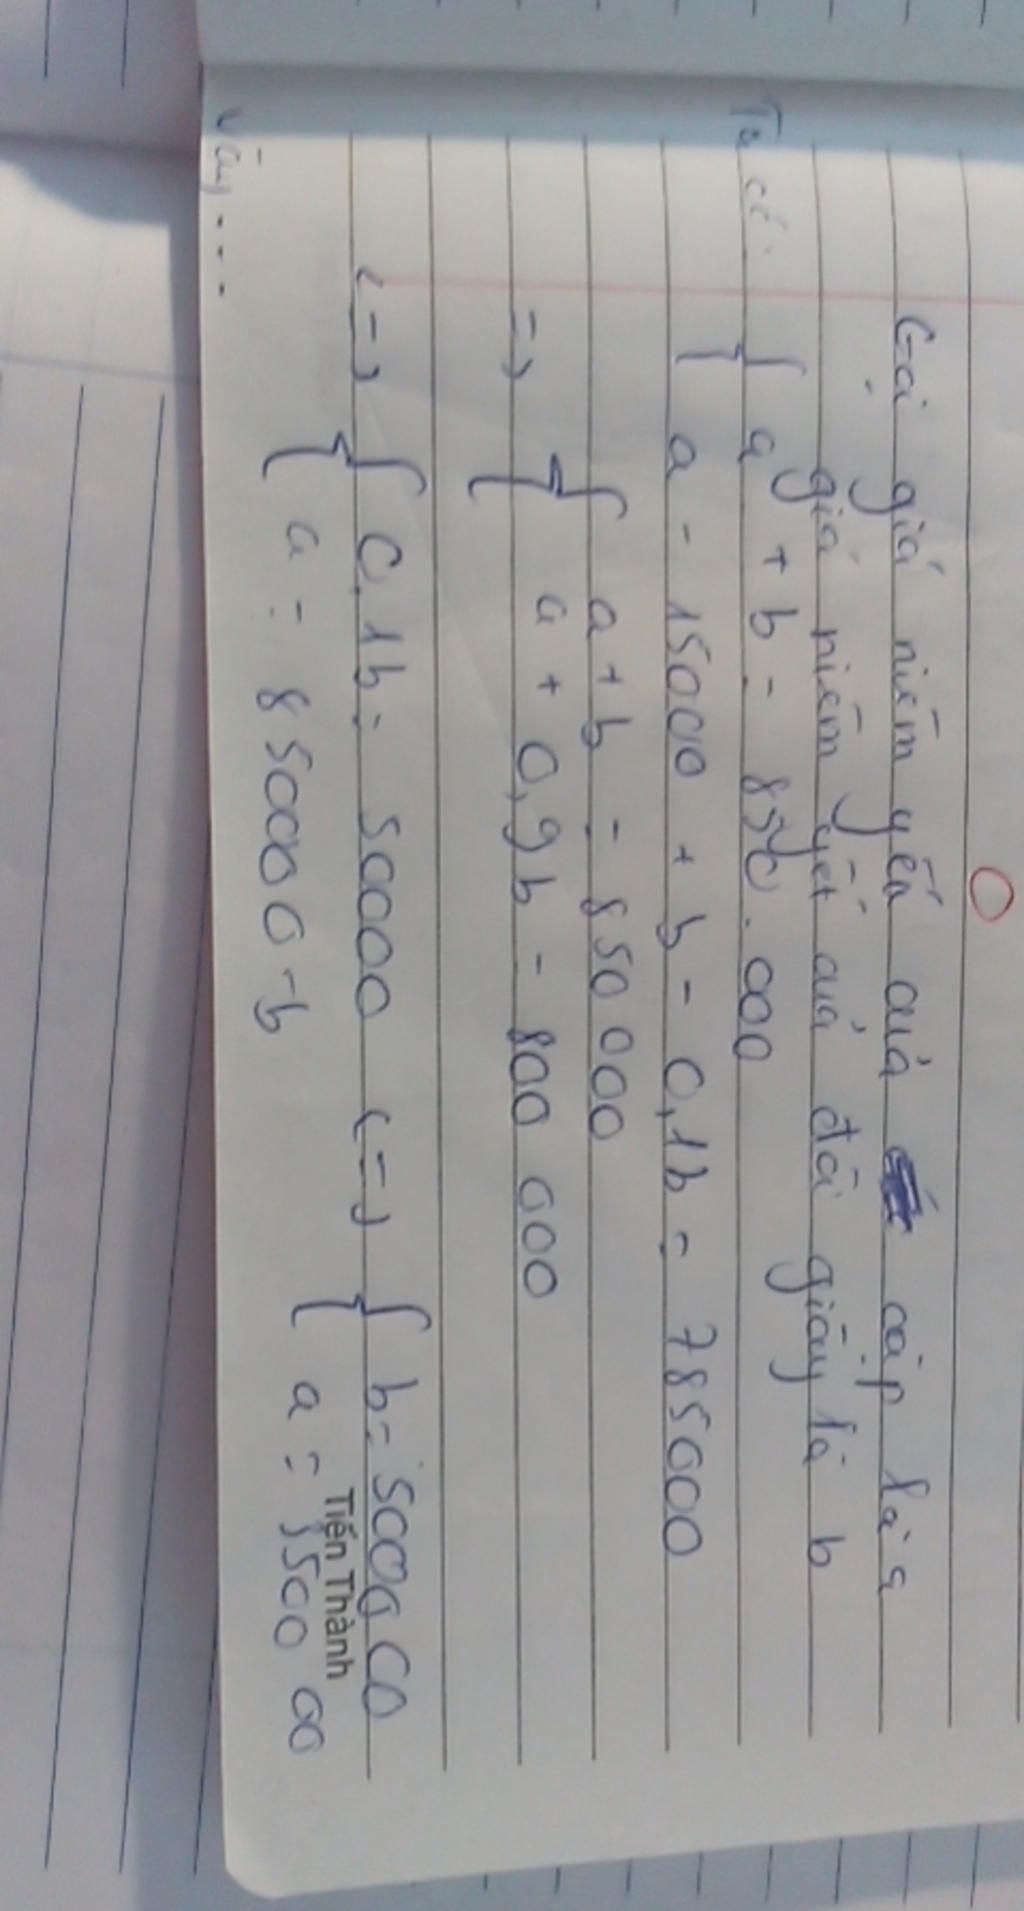 Gọi giá niêm yết của cặp là a
giá niêm yết của đôi giày là b
Ta có
{ a + b = 850.000
{ a - 15000 + b - 0,1b = 785000
=> { a + b = 850 000
{ a + 0,9b = 800 000
<=> { 0,1b = 50000 <=> { b = 500000
{ a = 850000 - b { a = 350000
Tiến Thành
Vậy....